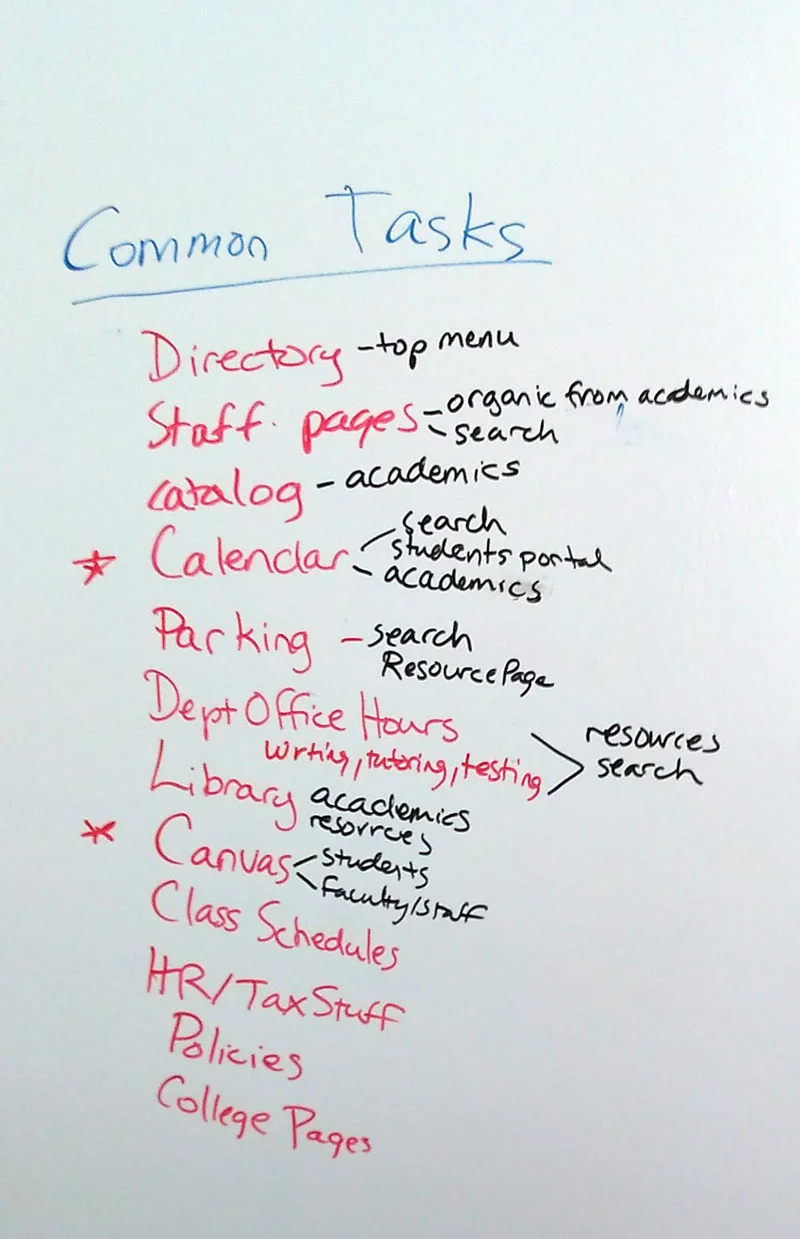 Common Tasks
Directory - top menu
Staff pages - organic from academics
- search
catalog - academics
* Calendar - search
students portal
- academics
Parking - search
Resource Page
Dept Office Hours resources
writing, tutoring, testing search
Library academics
resources
* Canvas - students
- faculty/staff
Class Schedules
HR/Tax Stuff
Policies
College Pages